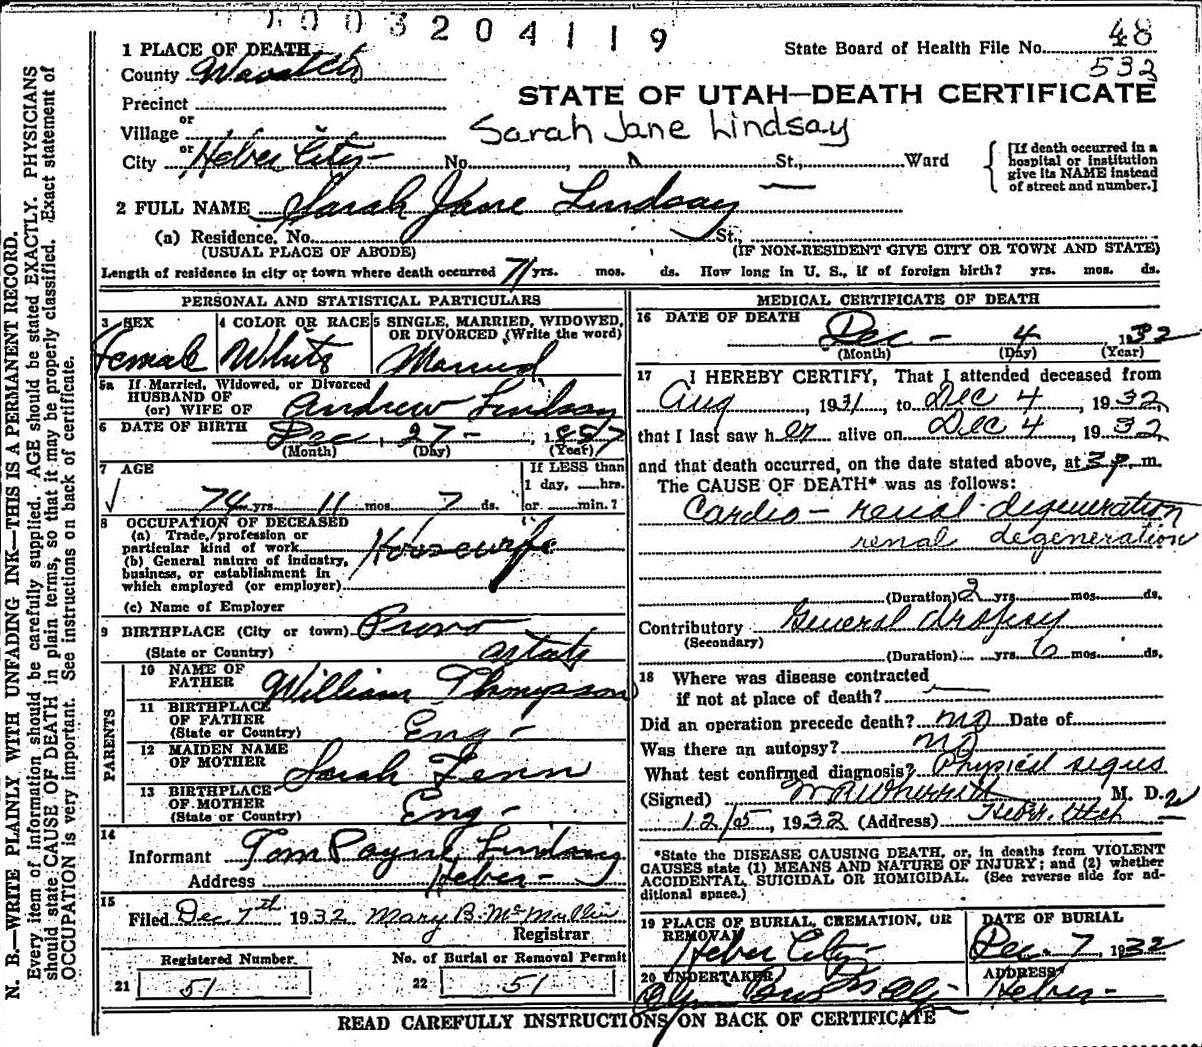 003204119
State Board of Health File No. 48
532
1 PLACE OF DEATH
County Wasatch
STATE OF UTAH—DEATH CERTIFICATE
Precinct
or
Village
Sarah Jane Lindsay
or
City Heber City- No. St., Ward
[If death occurred in a
hospital or institution
give its NAME instead
of street and number.]
2 FULL NAME Sarah Jane Lindsay
(a) Residence. No. St.,
(USUAL PLACE OF ABODE) (IF NON-RESIDENT GIVE CITY OR TOWN AND STATE)
Length of residence in city or town where death occurred 71 yrs. mos. ds. How long in U. S., if of foreign birth? yrs. mos. ds.
PERSONAL AND STATISTICAL PARTICULARS
3 SEX 4 COLOR OR RACE 5 SINGLE, MARRIED, WIDOWED,
OR DIVORCED (Write the word)
Female White Married
5a If Married, Widowed, or Divorced
HUSBAND OF
(or) WIFE OF Andrew Lindsay
6 DATE OF BIRTH Dec, 27-, 1857
(Month) (Day) (Year)
7 AGE If LESS than
1 day, hrs.
74 yrs 11 mos 7 ds. or min.?
8 OCCUPATION OF DECEASED
(a) Trade, profession or
particular kind of work Housewife
(b) General nature of industry,
business, or establishment in
which employed (or employer)
(c) Name of Employer
9 BIRTHPLACE (City or town) Provo
(State or Country)
PARENTS
10 NAME OF
FATHER William Thompson
11 BIRTHPLACE
OF FATHER
(State or Country) Eng-
12 MAIDEN NAME
OF MOTHER Sarah Fenn
13 BIRTHPLACE
OF MOTHER
(State or Country) Eng-
14
Informant Tom Payne Lindsay
Address Heber-
15
Filed Dec 7th 1932 Mary B. McMullin
Registrar
Registered Number. No. of Burial or Removal Permit
21 51 22 51
MEDICAL CERTIFICATE OF DEATH
16 DATE OF DEATH
Dec- 4 1932
(Month) (Day) (Year)
17 I HEREBY CERTIFY, That I attended deceased from
Aug, 1931, to Dec 4, 1932,
that I last saw her alive on Dec 4, 1932
and that death occurred, on the date stated above, at 3 p. m.
The CAUSE OF DEATH* was as follows:
Cardio-renal degeneration
renal degeneration
(Duration) 2 yrs. mos. ds.
Contributory General dropsy
(Secondary)
(Duration) yrs. 6 mos. ds.
18 Where was disease contracted
if not at place of death?
Did an operation precede death? no Date of
Was there an autopsy? no
What test confirmed diagnosis? Physical signs
(Signed) M. D.
12/5, 1932 (Address) Heber, Utah
*State the DISEASE CAUSING DEATH, or, in deaths from VIOLENT
CAUSES state (1) MEANS AND NATURE OF INJURY; and (2) whether
ACCIDENTAL, SUICIDAL OR HOMICIDAL. (See reverse side for ad-
ditional space.)
19 PLACE OF BURIAL, CREMATION, OR
REMOVAL
Heber City-
DATE OF BURIAL
Dec. 7, 1932
20 UNDERTAKER
ADDRESS
Heber-
READ CAREFULLY INSTRUCTIONS ON BACK OF CERTIFICATE
N. B.—WRITE PLAINLY WITH UNFADING INK—THIS IS A PERMANENT RECORD.
Every item of information should be carefully supplied. AGE should be stated EXACTLY. PHYSICIANS
should state CAUSE OF DEATH in plain terms, so that it may be properly classified. Exact statement of
OCCUPATION is very important. See instructions on back of certificate.